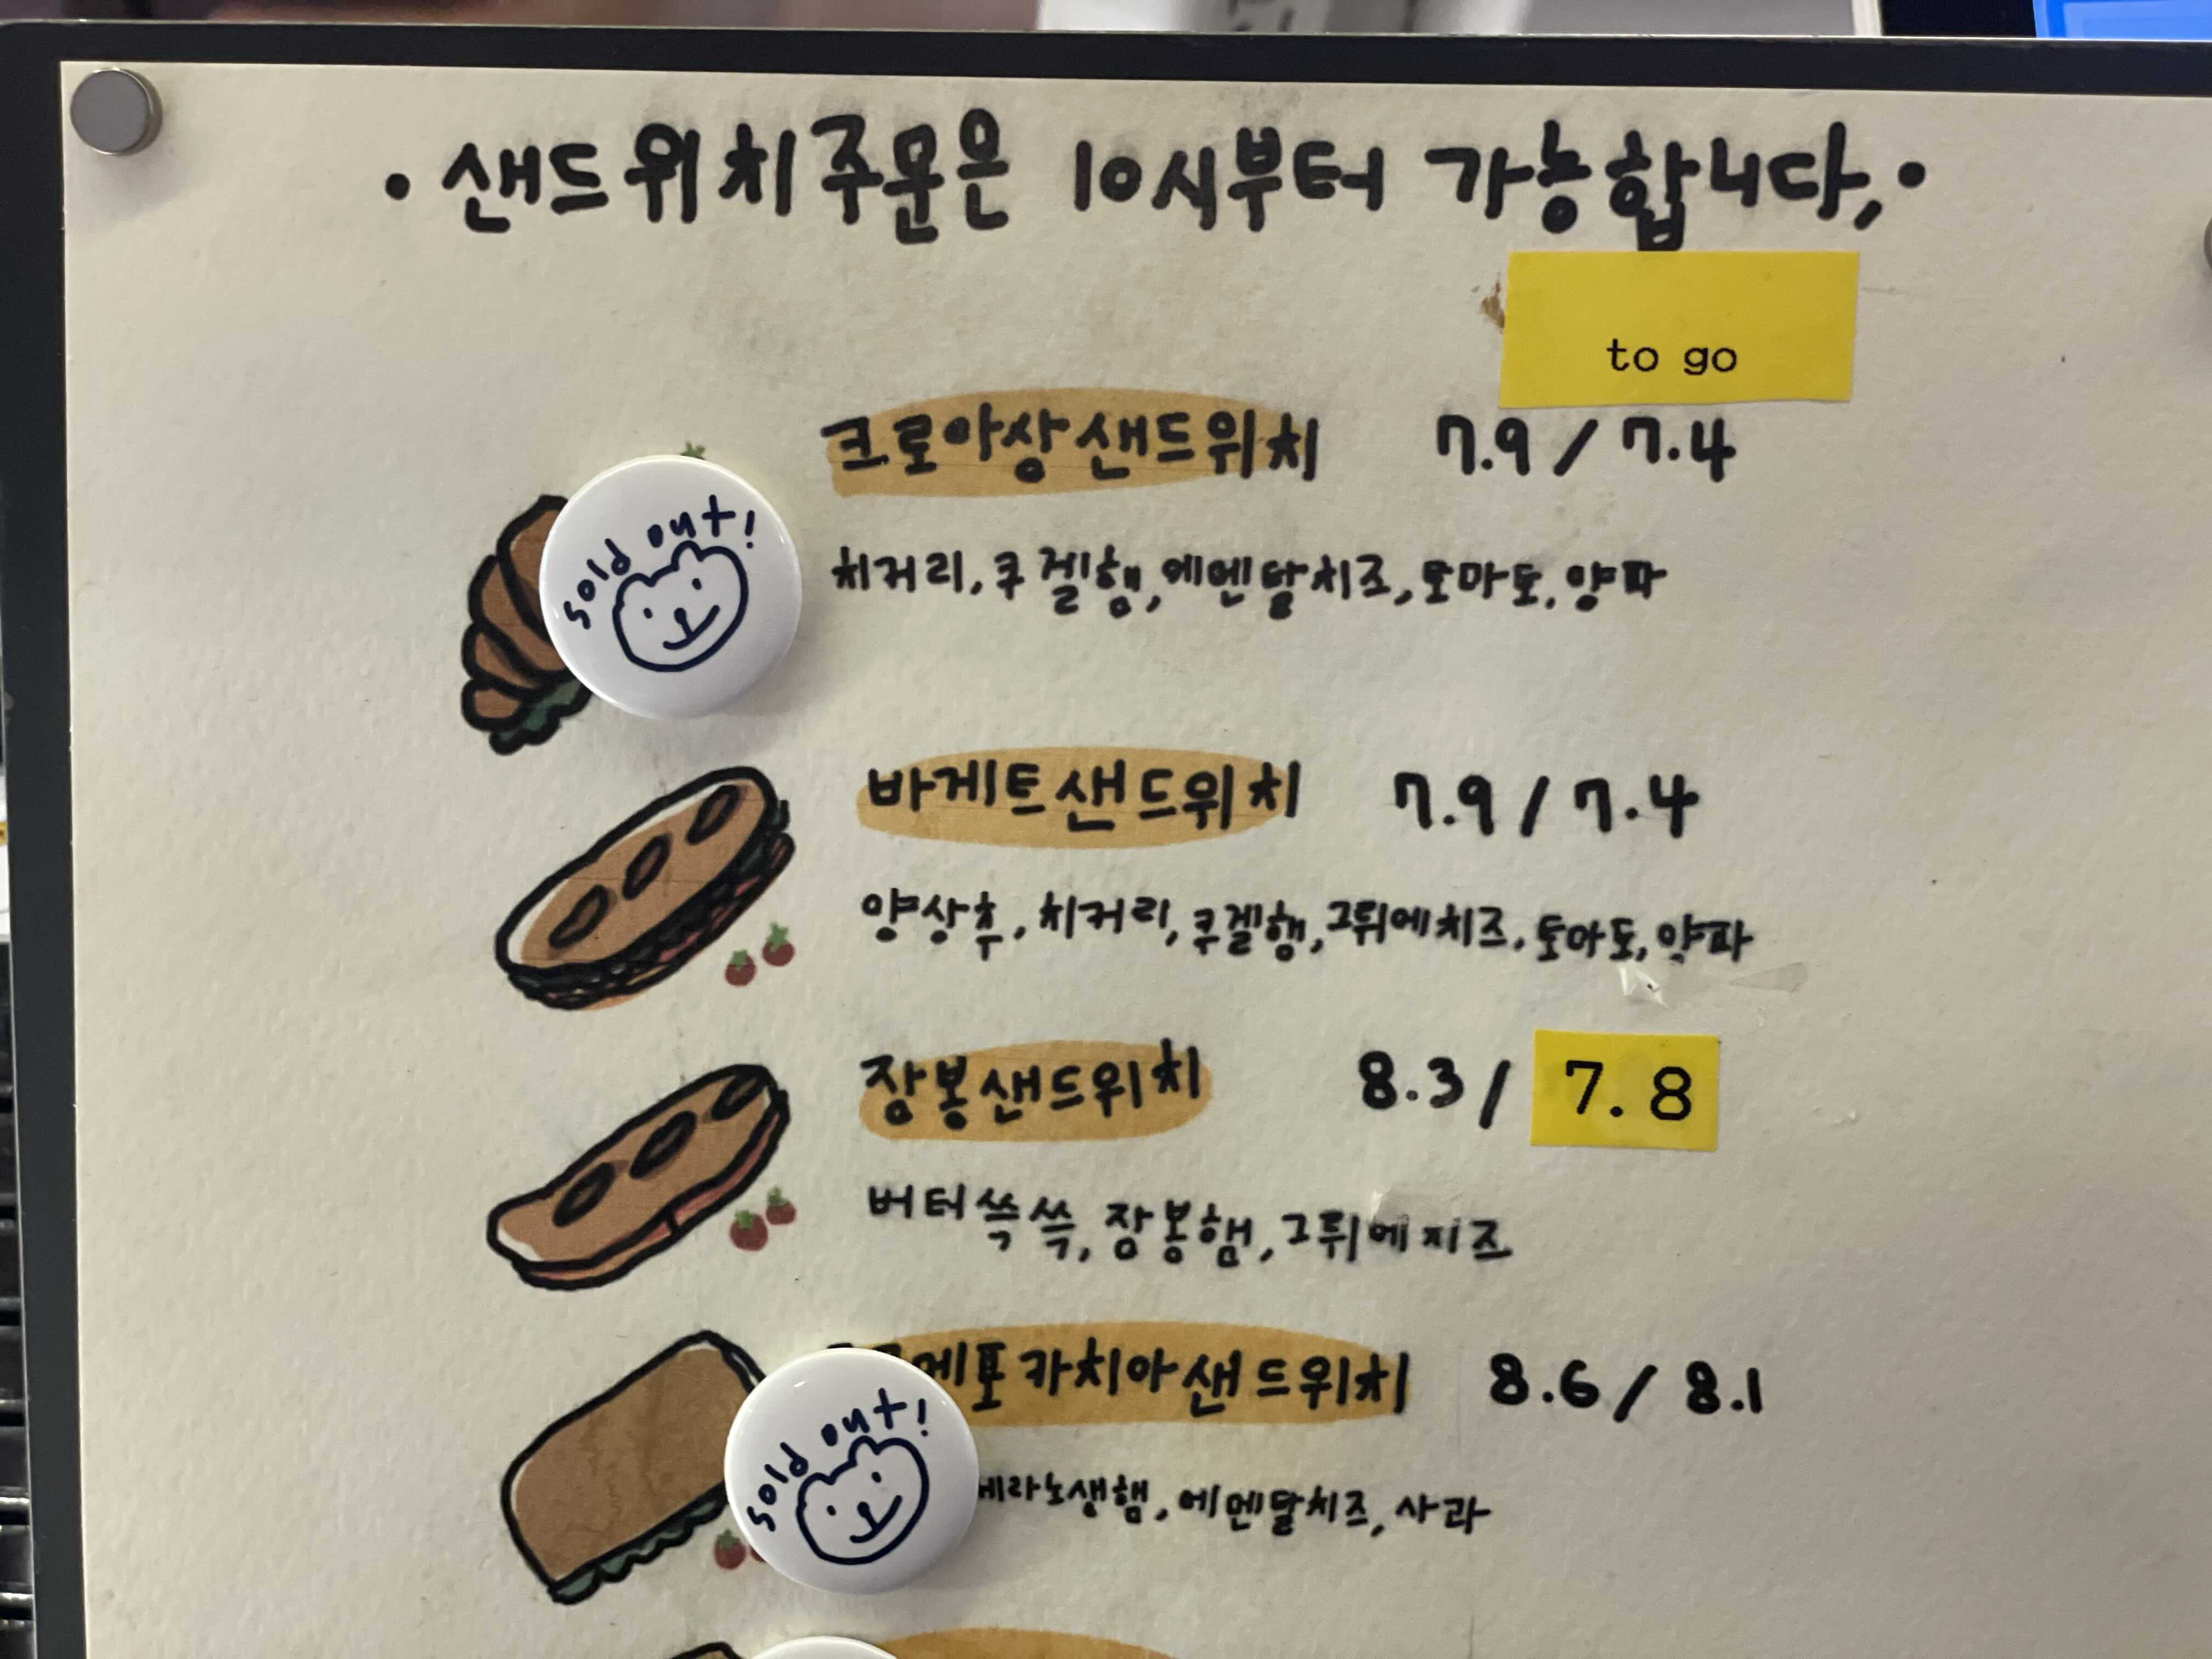 • 샌드위치 주문은 10시부터 가능합니다, •
to go
크로아상샌드위치 7.9 / 7.4
sold out!
치커리, 쿠겔햄, 에멘탈치즈, 토마토, 양파
바게트샌드위치 7.9 / 7.4
양상추, 치커리, 쿠겔햄, 그뤼에치즈, 토마토, 양파
장봉샌드위치 8.3 / 7.8
버터쓱쓱, 장봉햄, 그뤼에치즈
포카치아샌드위치 8.6 / 8.1
sold out!
세라노생햄, 에멘달치즈, 사과